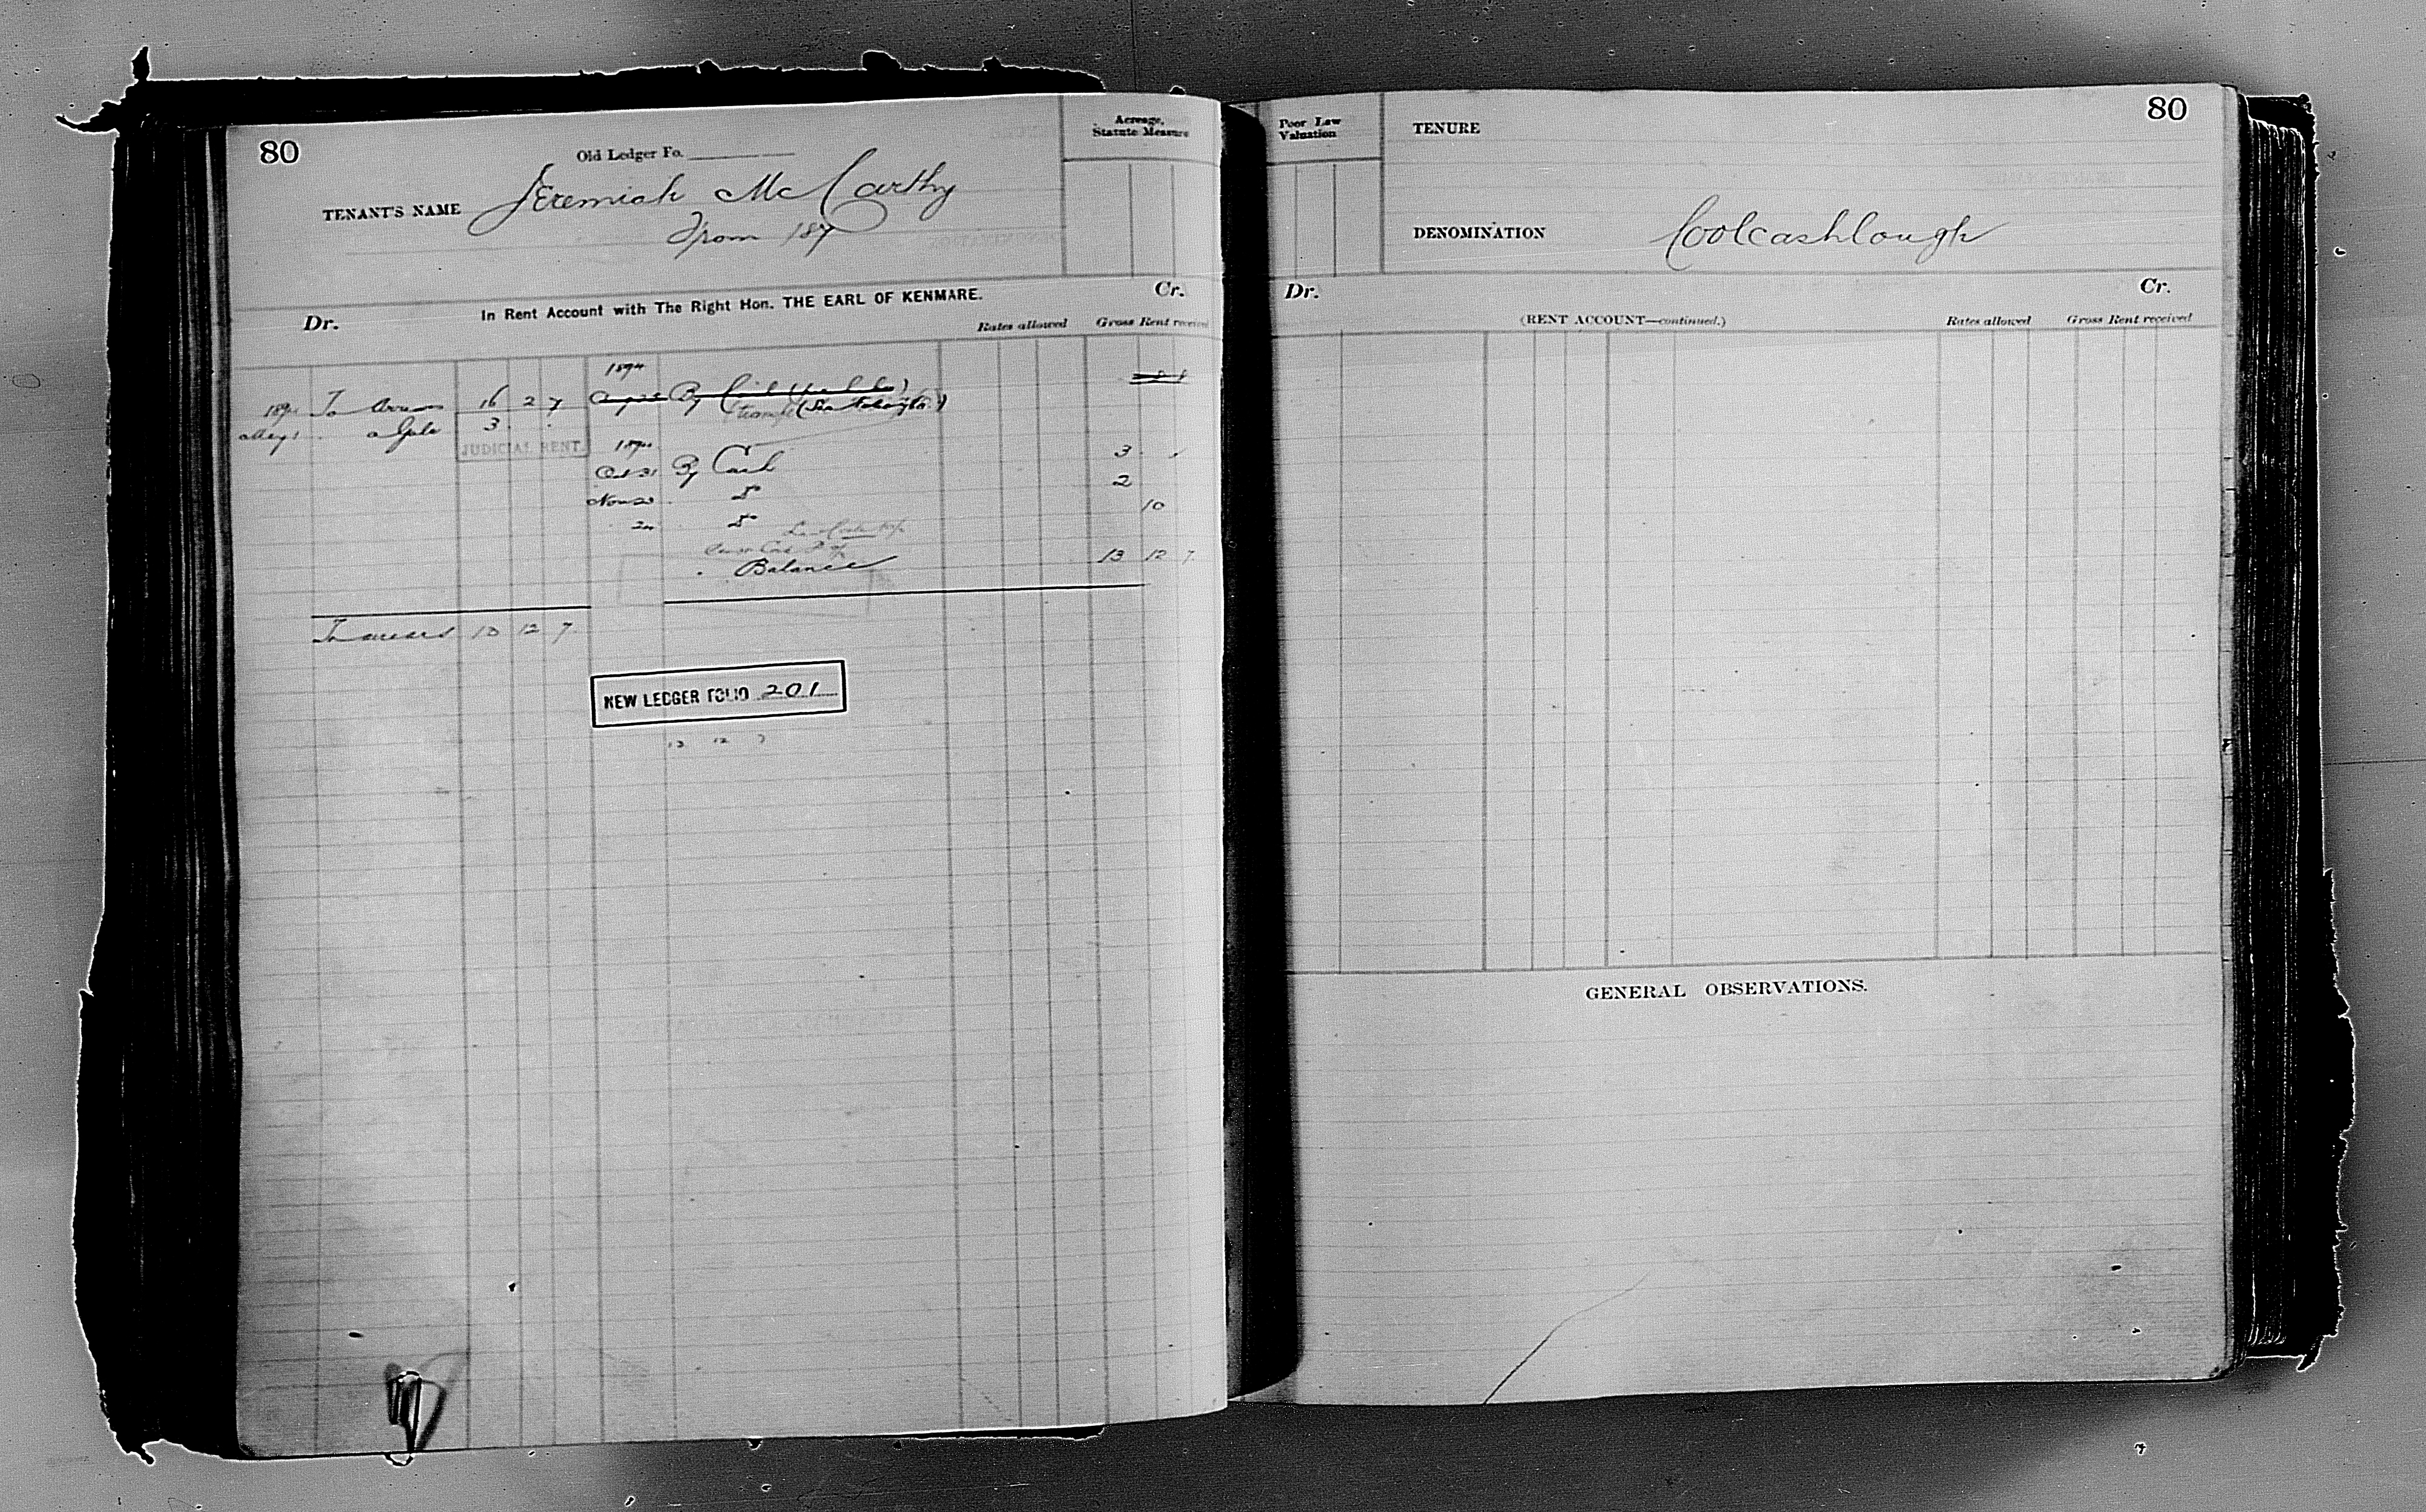 80
Old Ledger Fo.
Acreage,
Statute Measure
TENANT'S NAME Jeremiah McCarthy
From 187
In Rent Account with The Right Hon. THE EARL OF KENMARE.
Dr.
Cr.
Rates allowed Gross Rent received
To Arrears 16 2 7
May 1 a Gale 3
JUDICIAL RENT
By
Oct 31 By Cash 3
Nov 23 Do 2
24 Do 10
Balance 13 12 7
To arrears 13 12 7
NEW LEDGER FOLIO 201
13 12 7
80
Poor Law
Valuation
TENURE
DENOMINATION Coolcashlough
Dr.
Cr.
(RENT ACCOUNT—continued.)
Rates allowed Gross Rent received
GENERAL OBSERVATIONS.